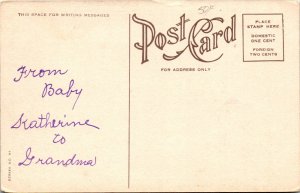 THIS SPACE FOR WRITING MESSAGES
Post Card
FOR ADDRESS ONLY
PLACE
STAMP HERE
DOMESTIC
ONE CENT
FOREIGN
TWO CENTS
50¢
From
Baby
Katherine
to
Grandma